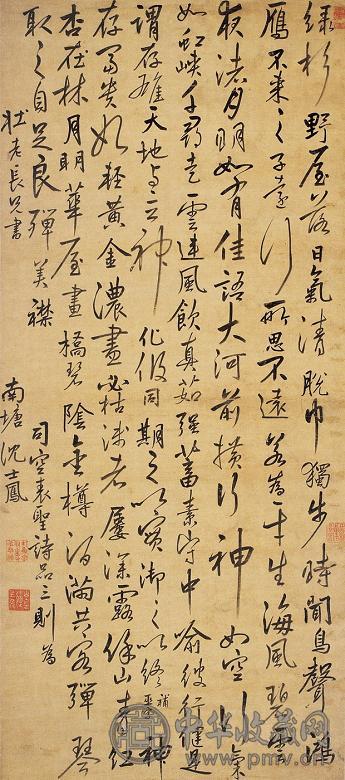 綠杉野屋落日氣清脫巾獨步時聞鳥聲鴻
雁不來之子遠行所思不遠若為平生海風碧雲
夜渚月明如有佳語大河前橫行神如空行氣
如虹峽千尋走雲連風飲真茹強蓄素守中喻彼行健是
謂存雄天地與立神化攸同期之以實御之以終補巫神
存富貴始輕黃金濃盡必枯淺者屢深露餘山青紅
杏在林月明華屋畫橋碧陰金樽酒滿共客彈琴
取之自足良彈美襟
司空表聖詩品三則為
老長兄書
南塘沈士鳳
中华收藏网
www.pmv.cn